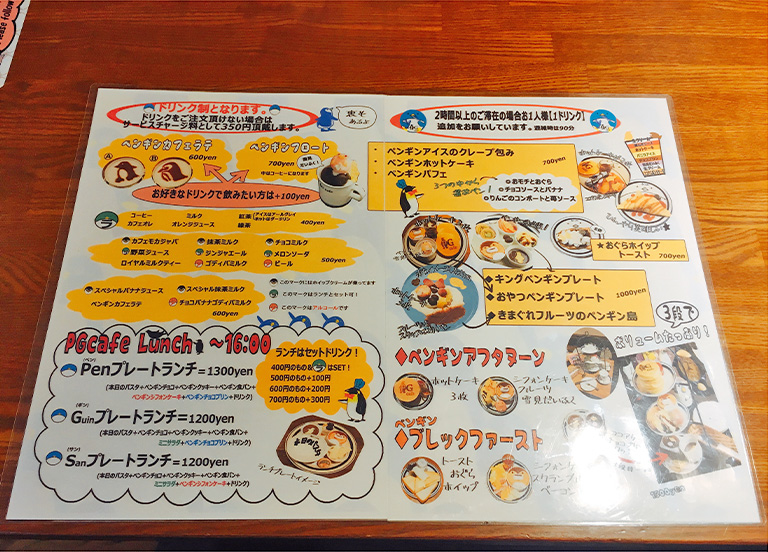 ドリンク制となります。
ドリンクをご注文頂けない場合は
サービスチャージ料として350円頂戴します。
ペンギンカフェラテ
600yen
A
B
ペンギンフロート
700yen
中はコーヒーになります
お好きなドリンクで飲みたい方は+100yen
コーヒー
ミルク
紅茶
カフェオレ
オレンジジュース
緑茶
400yen
カフェモカジャバ
抹茶ミルク
チョコミルク
野菜ジュース
ジンジャエール
メロンソーダ
ロイヤルミルクティー
ゴディバミルク
ビール
500yen
スペシャルバナナジュース
スペシャル抹茶ミルク
ペンギンカフェラテ
チョコバナナゴディバミルク
600yen
このマークにはホイップクリームが乗ってます
このマークはランチとセット可!
このマークはアルコールです
PGcafe Lunch ~16:00
(ペン)
Penプレートランチ=1300yen
(本日のパスタ+ペンギンチョコ+ペンギンクッキー+ペンギン食パン+
ペンギンシフォンケーキ+ペンギンチョコプリン+ドリンク)
(ギン)
Guinプレートランチ=1200yen
(本日のパスタ+ペンギンチョコ+ペンギンクッキー+ペンギン食パン+
ミニサラダ+ペンギンチョコプリン+ドリンク)
(サン)
Sanプレートランチ=1200yen
(本日のパスタ+ペンギンチョコ+ペンギンクッキー+ペンギン食パン+
ミニサラダ+ペンギンシフォンケーキ+ドリンク)
ランチはセットドリンク!
400円のもの&はSET!
500円のもの+100円
600円のもの+200円
700円のもの+300円
ランチプレートイメージ
2時間以上のご滞在の場合お1人様【1ドリンク】
追加をお願いしています。混雑時は90分
・ペンギンアイスのクレープ包み
・ペンギンホットケーキ
・ペンギンパフェ
700yen
おモチとおぐら
チョコソースとバナナ
りんごのコンポートと苺ソース
★おぐらホイップ
トースト
700yen
キングペンギンプレート
おやつペンギンプレート
1000yen
きまぐれフルーツのペンギン島
3段で
ボリュームたっぷり!
◆ペンギンアフタヌーン
ホットケーキ
3枚
シフォンケーキ
フルーツ
雪見だいふく
ペンギン
◆ブレックファースト
トースト
おぐら
ホイップ
シフォン
スクランブル
ベーコン